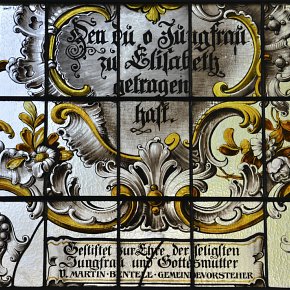 Den du o Jungfrau
zu Elisabeth
getragen
hast.
Gestiftet zur Ehre der seligsten
Jungfrau und Gottesmutter
V. MARTIN · BENTELE · GEMEINDEVORSTEHER